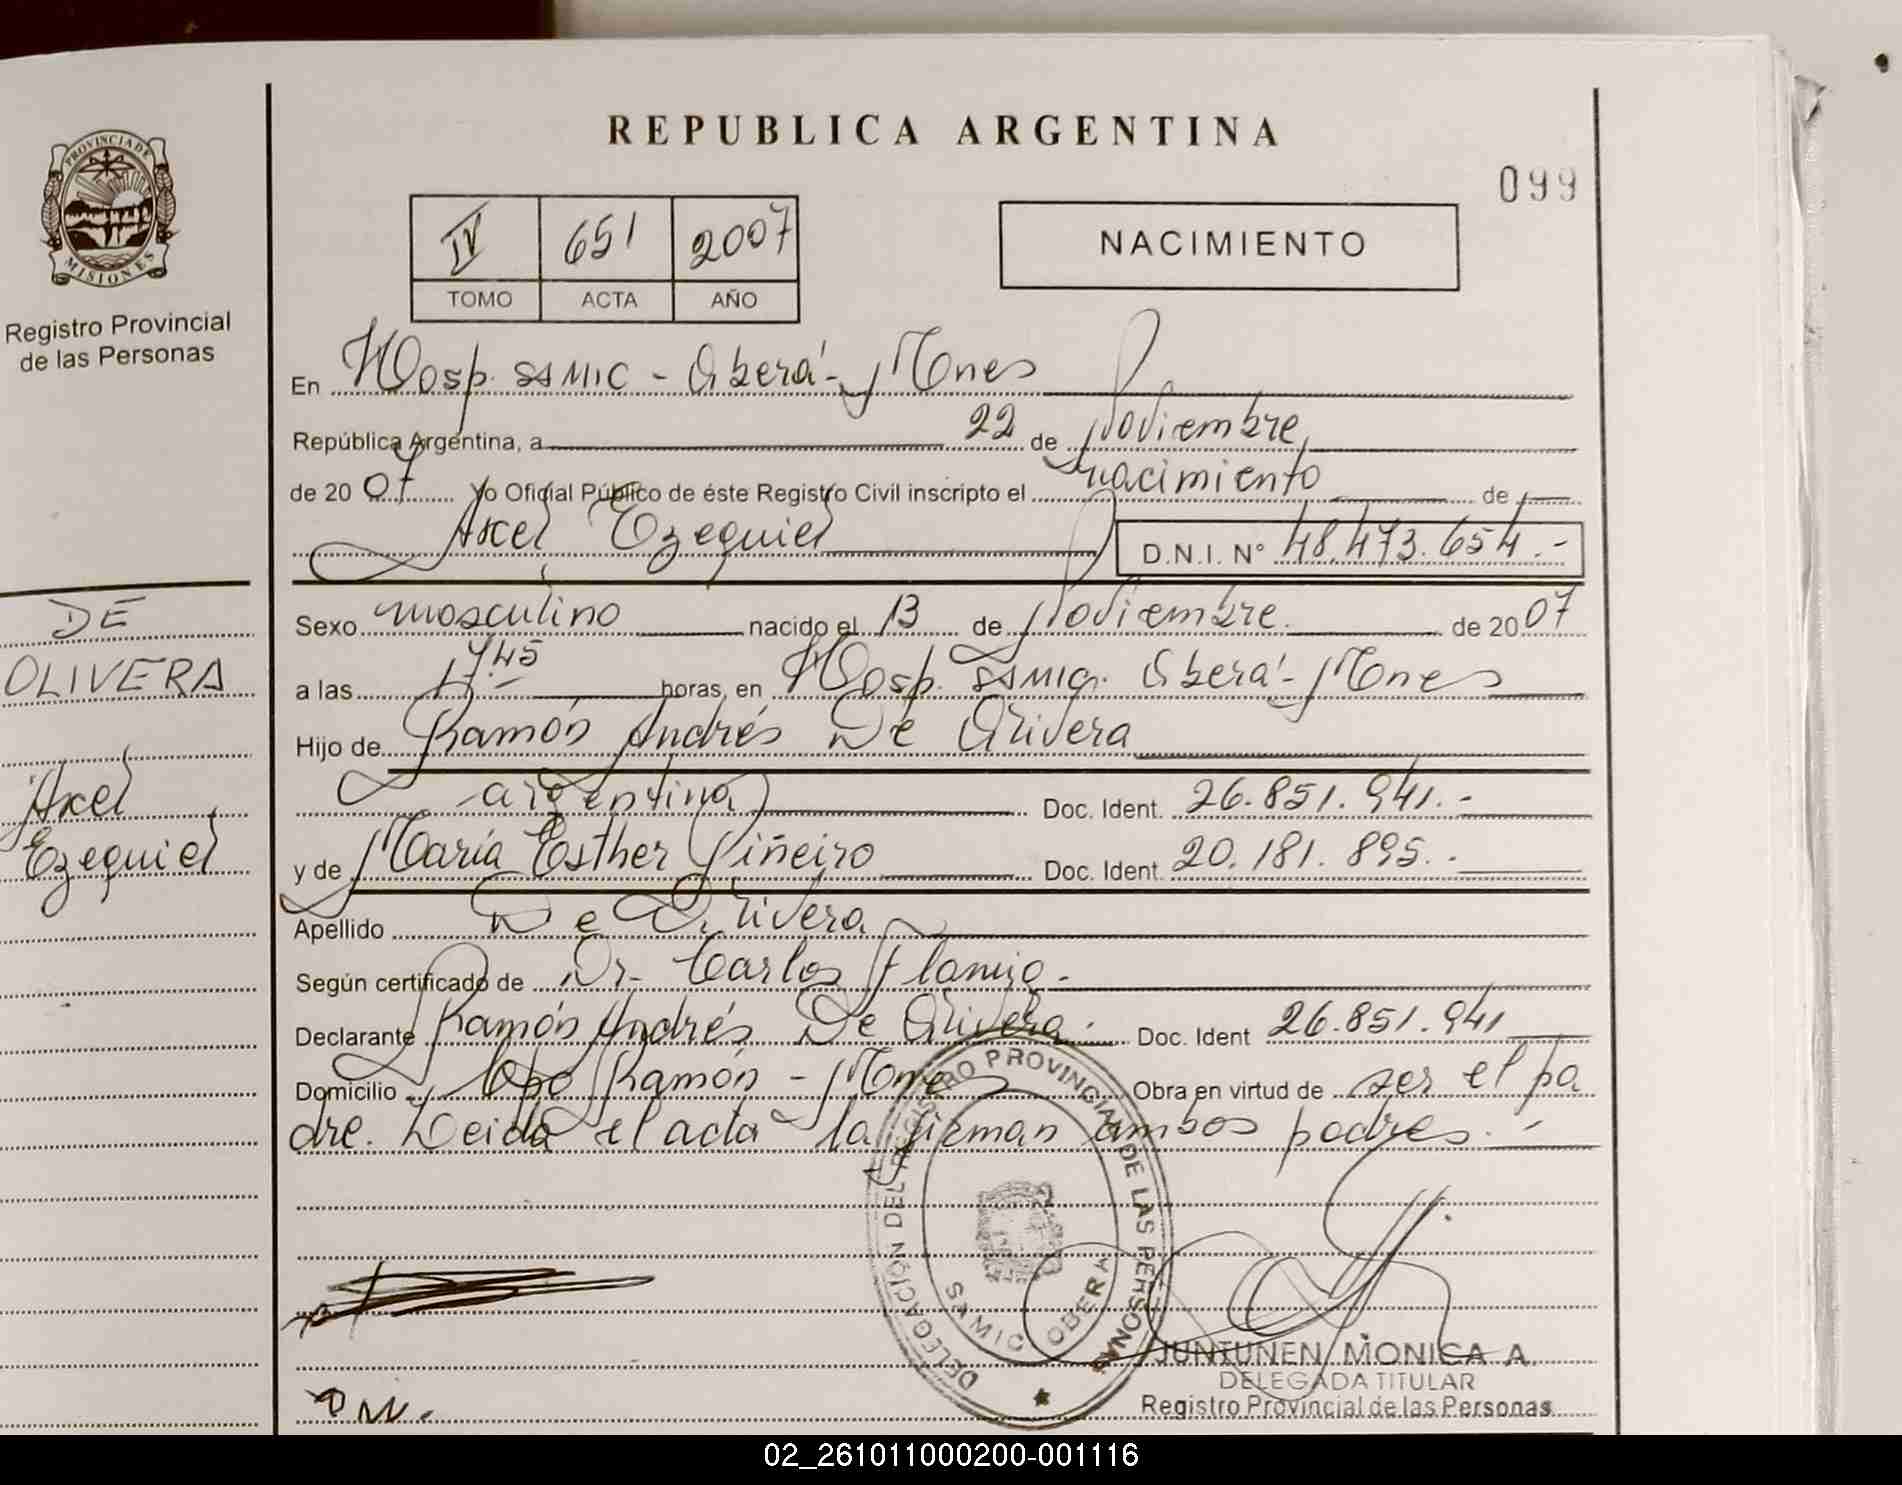 PROVINCIA DE
MISIONES
Registro Provincial
de las Personas
DE
OLIVERA
Axel
Ezequiel
REPUBLICA ARGENTINA
099
IV 651 2007
TOMO ACTA AÑO
NACIMIENTO
En Hosp. SAMIC - Oberá - Mnes
República Argentina, a 22 de Noviembre
de 2007 Yo Oficial Público de éste Registro Civil inscripto el nacimiento de
Axel Ezequiel D.N.I. N° 48.473.654.-
Sexo masculino nacido el 13 de Noviembre. de 2007
a las 17.45 horas, en Hosp. SAMIC. Oberá - Mnes
Hijo de Ramón Andrés De Olivera
argentina Doc. Ident. 26.851.941.-
y de María Esther Piñeiro Doc. Ident 20.181.895.-
Apellido De Olivera
Según certificado de Dr. Carlos
Declarante Ramón Andrés De Olivera. Doc. Ident 26.851.941
Domicilio Cpo Ramón - Mnes Obra en virtud de ser el pa
dre. Leida el acta la firman ambos padres.-
DELEGACION DEL REGISTRO PROVINCIAL DE LAS PERSONAS
SAMIC OBERA
JUNTUNEN MONICA A.
DELEGADA TITULAR
Registro Provincial de las Personas
02_261011000200-001116